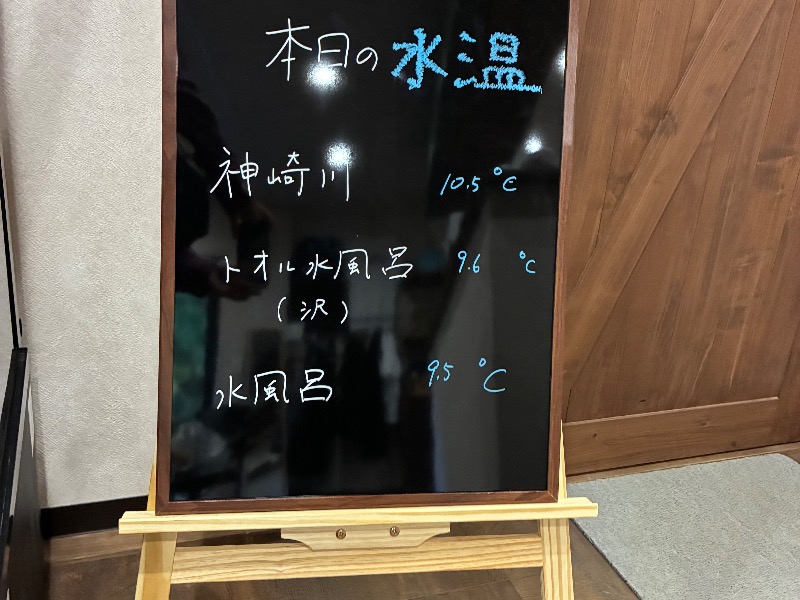 本日の水温
神崎川 10.5℃
トオル水風呂 9.6 ℃
(沢)
水風呂 9.5 ℃